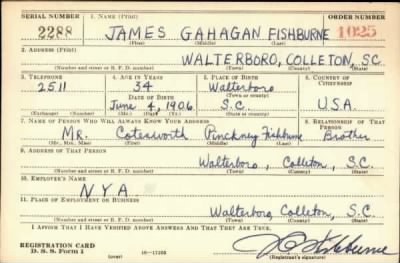 SERIAL NUMBER 1. NAME (Print) ORDER NUMBER
2288 JAMES GAHAGAN FISHBURNE 1025
(First) (Middle) (Last)
2. ADDRESS (Print)
WALTERBORO, COLLETON, S.C.
(Number and street or R. F. D. number) (Town) (County) (State)
3. TELEPHONE 4. AGE IN YEARS 5. PLACE OF BIRTH 6. COUNTRY OF CITIZENSHIP
2511 34 Walterboro
DATE OF BIRTH (Town or county)
June 4, 1906 S.C. U.S.A.
(Exchange) (Number) (Mo.) (Day) (Yr.) (State or country)
7. NAME OF PERSON WHO WILL ALWAYS KNOW YOUR ADDRESS 8. RELATIONSHIP OF THAT PERSON
Mr. Cotesworth Pinckney Fishburne Brother
(Mr., Mrs., Miss) (First) (Middle) (Last)
9. ADDRESS OF THAT PERSON
Walterboro, Colleton, S.C.
(Number and street or R. F. D. number) (Town) (County) (State)
10. EMPLOYER'S NAME
NYA
11. PLACE OF EMPLOYMENT OR BUSINESS
Walterboro, Colleton, S.C.
(Number and street or R. F. D. number) (Town) (County) (State)
I AFFIRM THAT I HAVE VERIFIED ABOVE ANSWERS AND THAT THEY ARE TRUE.
REGISTRATION CARD
D. S. S. Form 1 (over) 16—17105 Fishburne
(Registrant's signature)